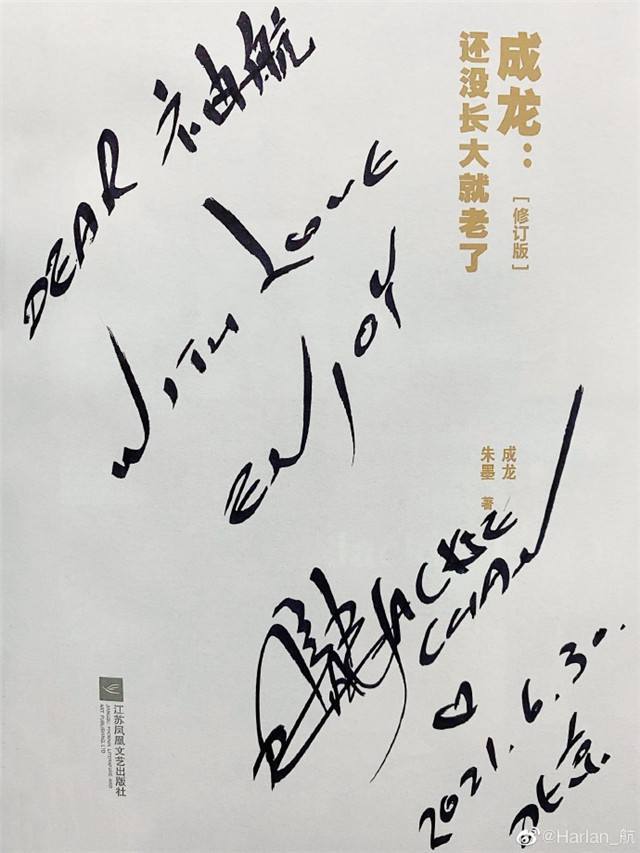 成龙：
还没长大就老了
[修订版]
DEAR 航
WITH LOVE
ENJOY
成龙
朱墨 著
JACKIE
CHAN
2021.6.30.
北京
江苏凤凰文艺出版社
JIANGSU PHOENIX LITERATURE AND
ART PUBLISHING, LTD
@Harlan_航